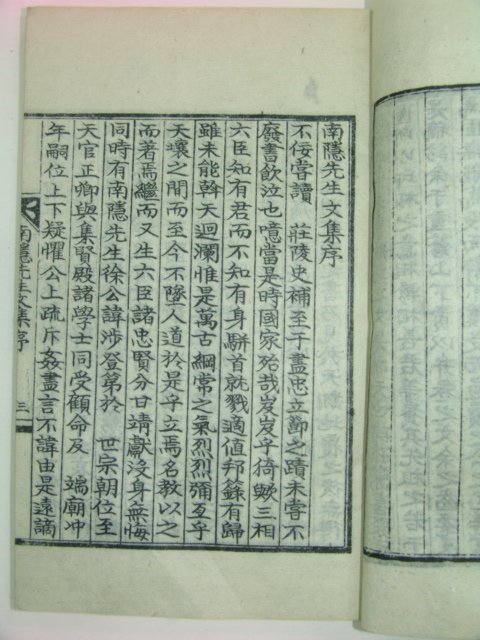 南隱先生文集序
不佞嘗讀　莊陵史補至于盡忠立節之蹟未嘗不
廢書飮泣也噫當是時國家殆哉岌岌乎猗歟三相
六臣知有君而不知有身騈首就戮適値邦籙有歸
雖未能斡天迴瀾惟是萬古綱常之氣烈烈彌亙乎
天壤之間而至今不墜人道於是乎立焉名教以之
而著焉繼而又生六臣諸忠賢分甘靖獻沒身無悔
同時有南隱先生徐公諱涉登第於　世宗朝位至
天官正卿與集賢殿諸學士同受顧命及　端廟冲
年嗣位上下疑懼公上疏斥姦盡言不諱由是遠謫
南隱先生文集序
三